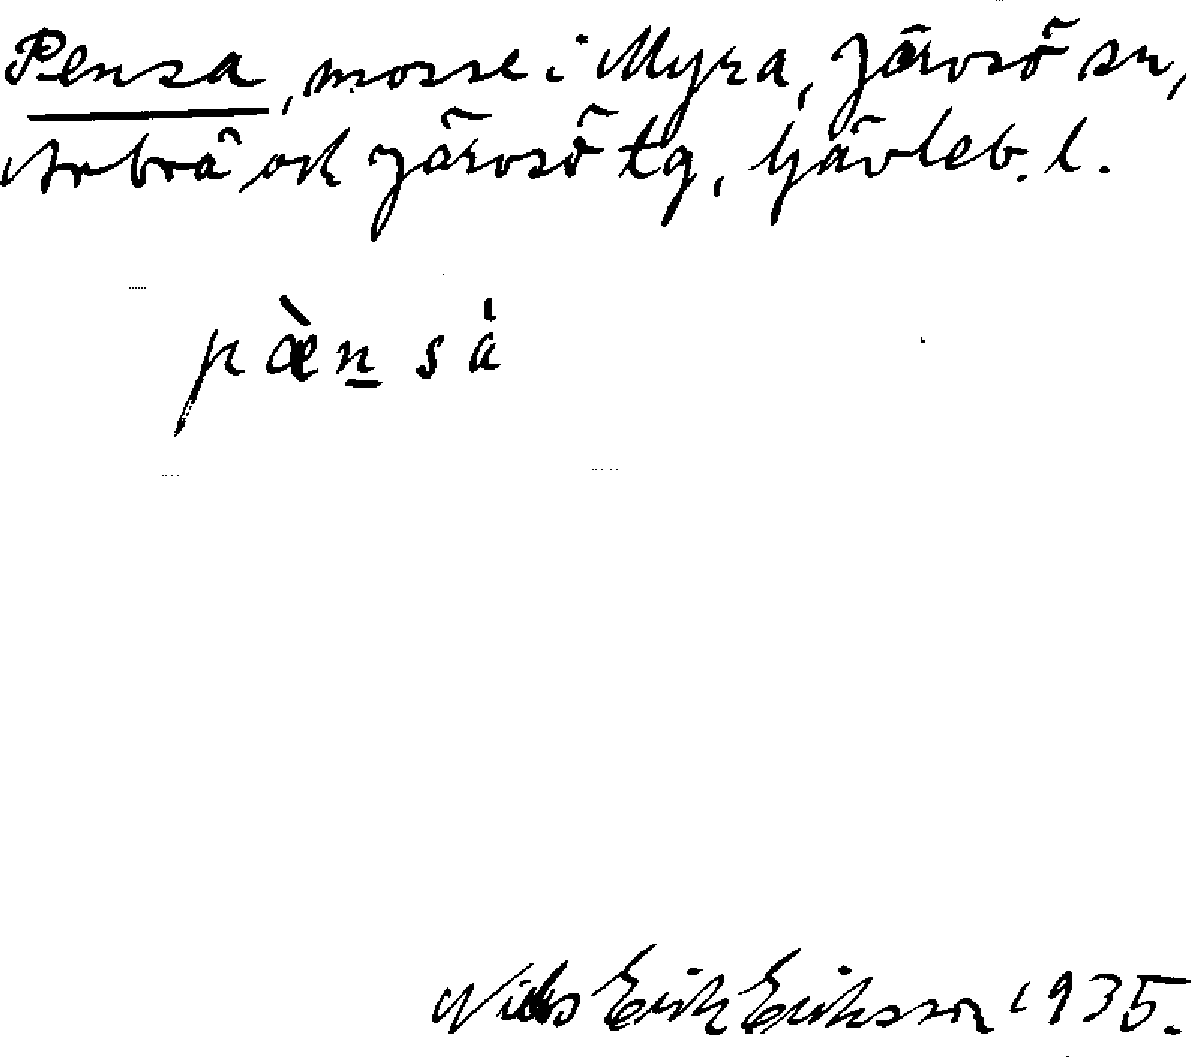 Pensa, mosse i Myra, Järvsö sn,
Arbrå och Järvsö tg, Gävleb. l.
pæ̀n̲ sȧ
Nils Erik Eriksson 1935.